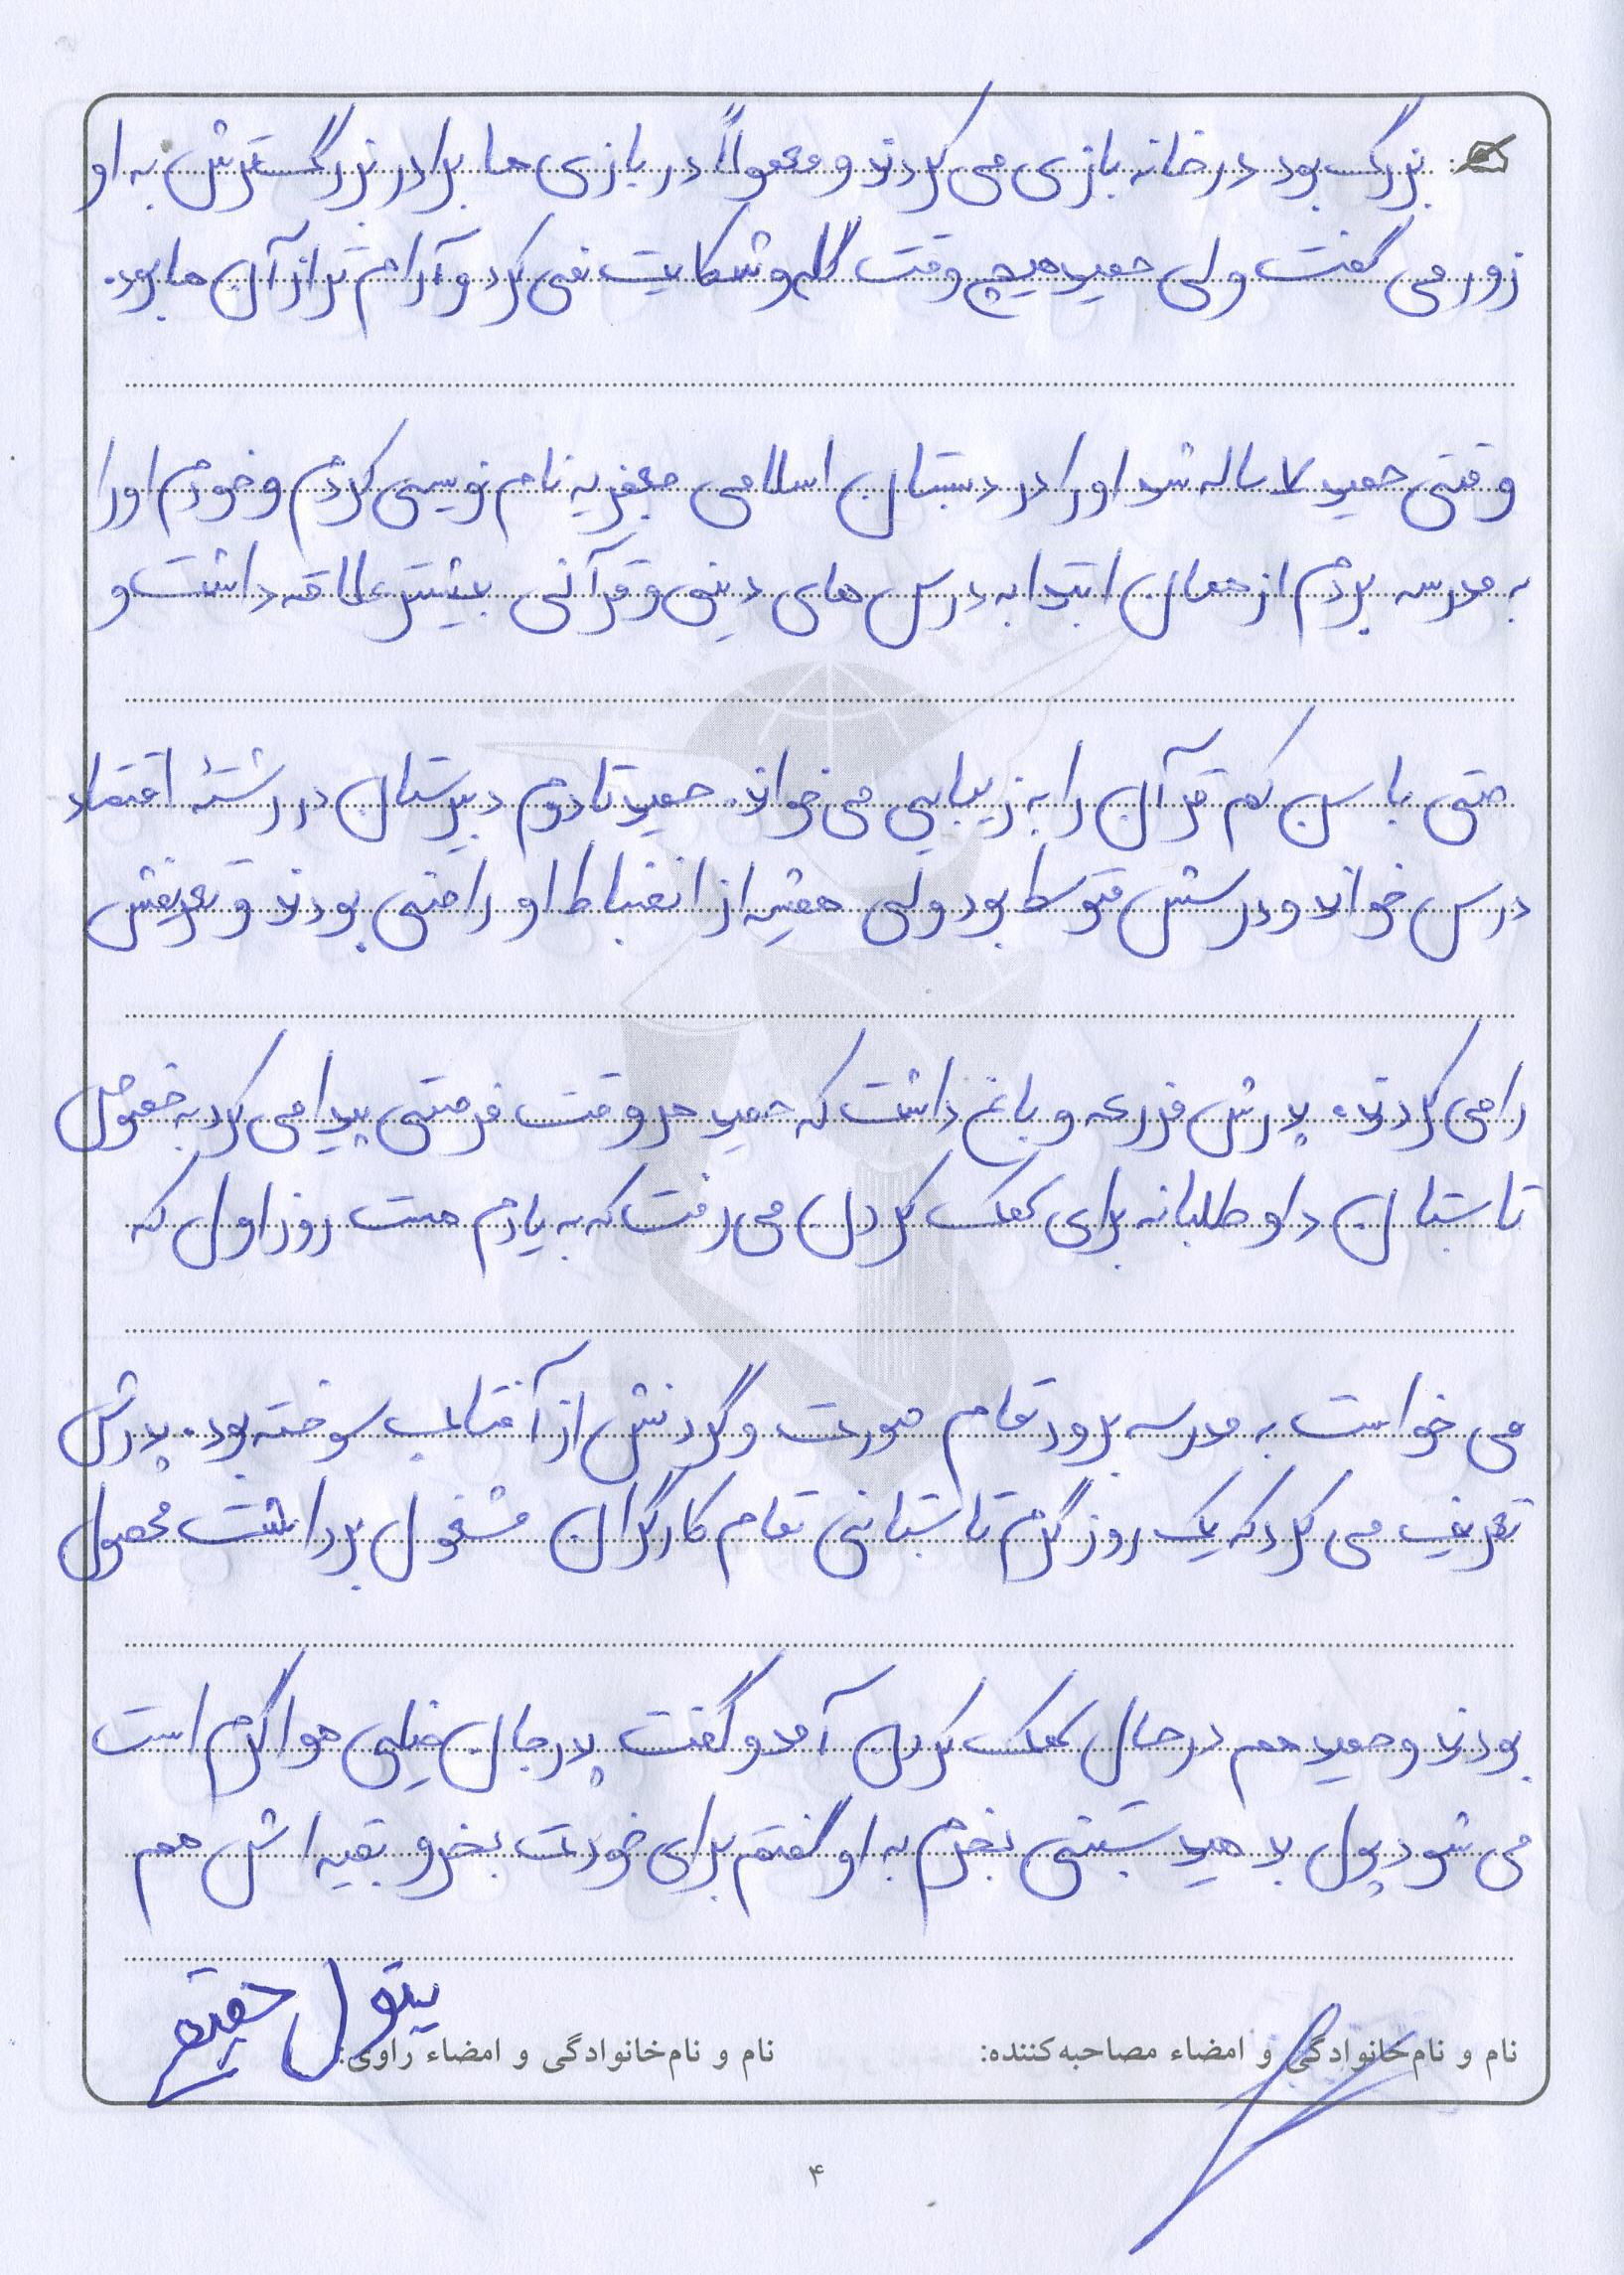 بزرگ بود در خانه بازی می کردند و معمولاً در بازی ها برادر بزرگسترش به او
زور می گفت ولی حمید هیچ وقت گله و شکایت نمی کرد و آرام تر از آن ها بود.
وقتی حمید ۷ ساله شد او را در دبستان اسلامی جعفریه نام نویسی کردم و خودم او را
به مدرسه بردم از همان ابتدا به درس های دینی و قرآنی بیشتر علاقه داشت و
حتی با سن کم قرآن را به زیبایی می خواند. حمید تا دوم دبیرستان در رشتهٔ اقتصاد
درس خواند و درسش متوسط بود ولی همیشه از انضباط او راضی بودند و تعریفش
را می کردند. پدرش مزرعه و باغ داشت که حمید هر وقت فرصتی پیدا می کرد به خصوص
تابستان داوطلبانه برای کمک کردن می رفت که به یادم هست روز اول که
می خواست به مدرسه برود تمام صورت و گردنش از آفتاب سوخته بود. پدرش
تعریف می کرد که یک روز گرم تابستانی تمام کارگران مشغول برداشت محصول
بودند و حمید هم در حال کمک کردن آمد و گفت پدر جان خیلی هوا گرم است
می شود پول بدهید بستنی بخرم به او گفتم برای خودت بخر و بقیه اش هم
نام و نام‌خانوادگی و امضاء مصاحبه‌کننده:
نام و نام‌خانوادگی و امضاء راوی: بتول
۴